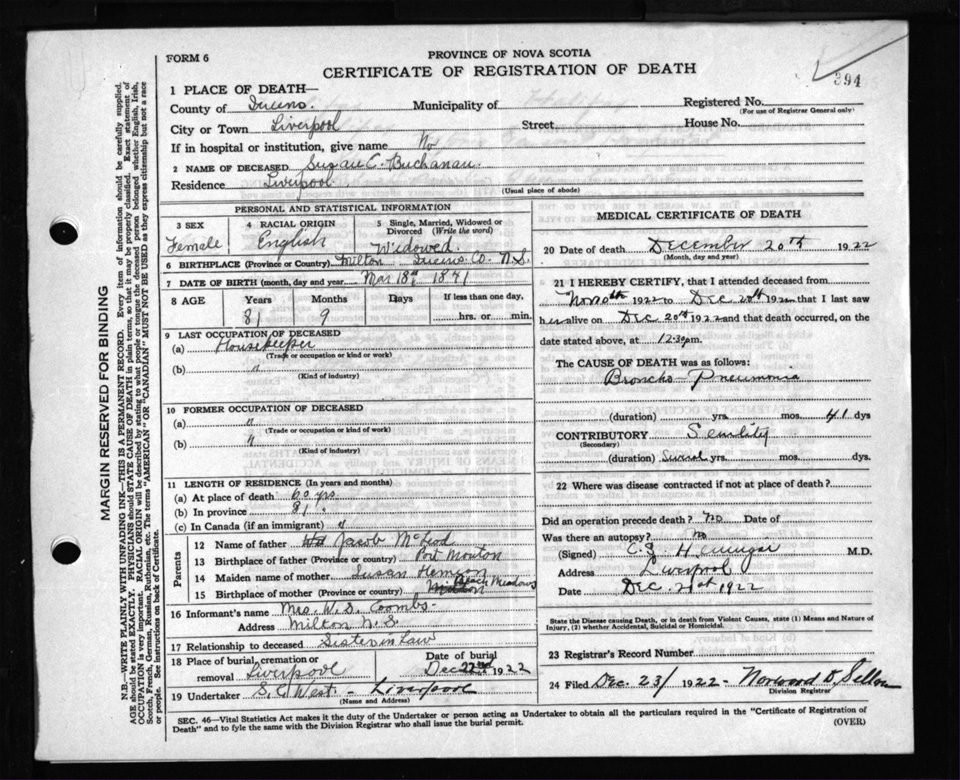 FORM 6
PROVINCE OF NOVA SCOTIA
CERTIFICATE OF REGISTRATION OF DEATH
394
1 PLACE OF DEATH—
County of Queens. Municipality of
Registered No.
(For use of Registrar General only)
City or Town Liverpool Street House No.
If in hospital or institution, give name No
2 NAME OF DECEASED Susan C. Buchanan.
Residence Liverpool
(Usual place of abode)
PERSONAL AND STATISTICAL INFORMATION
3 SEX
Female
4 RACIAL ORIGIN
English
5 Single, Married, Widowed or Divorced (Write the word)
Widowed.
6 BIRTHPLACE (Province or Country) Milton Queens Co. N.S.
7 DATE OF BIRTH (month, day and year) Mar 18th 1841
8 AGE Years Months Days If less than one day,
81 9 hrs. or min.
9 LAST OCCUPATION OF DECEASED
(a) Housekeeper
(Trade or occupation or kind or work)
(b) "
(Kind of industry)
10 FORMER OCCUPATION OF DECEASED
(a) "
(Trade or occupation or kind of work)
(b) "
(Kind of industry)
11 LENGTH OF RESIDENCE (In years and months)
(a) At place of death 60 yrs.
(b) In province 81 "
(c) In Canada (if an immigrant) "
Parents
12 Name of father Jacob McLeod
13 Birthplace of father (Province or country) Port Mouton
14 Maiden name of mother Susan
15 Birthplace of mother (Province or country) Beach Meadows
16 Informant's name Mrs. W. S. Coombs.
Address Milton N.S.
17 Relationship to deceased Sister in Law
18 Place of burial, cremation or removal Liverpool
Date of burial
Dec 22nd 1922
19 Undertaker S. C. West. - Liverpool
(Name and Address)
MEDICAL CERTIFICATE OF DEATH
20 Date of death December 20th 1922
(Month, day and year)
21 I HEREBY CERTIFY, that I attended deceased from
1922 to Dec 20th 1922 that I last saw
her alive on Dec 20th 1922 and that death occurred, on the
date stated above, at 12:30 pm.
The CAUSE OF DEATH was as follows:
Broncho-Pneumonia
(duration) yrs. mos. 41 dys
CONTRIBUTORY Senility
(Secondary)
(duration) Several yrs. mos. dys.
22 Where was disease contracted if not at place of death?
Did an operation precede death? No Date of
Was there an autopsy? No
(Signed) M.D.
Address Liverpool
Date Dec. 21st 1922
State the Disease causing Death, or in death from Violent Causes, state (1) Means and Nature of Injury, (2) whether Accidental, Suicidal or Homicidal.
23 Registrar's Record Number
24 Filed Dec. 23/ 1922 - Norwood D. Sellon
Division Registrar
SEC. 46—Vital Statistics Act makes it the duty of the Undertaker or person acting as Undertaker to obtain all the particulars required in the "Certificate of Registration of
Death" and to fyle the same with the Division Registrar who shall issue the burial permit.
(OVER)
MARGIN RESERVED FOR BINDING
N.B.—WRITE PLAINLY WITH UNFADING INK—THIS IS A PERMANENT RECORD. Every item of information should be carefully supplied.
AGE should be stated EXACTLY. PHYSICIANS should STATE CAUSE OF DEATH in plain terms, so that it may be properly classified. Exact statement of
OCCUPATION is very important. RACIAL ORIGIN will be described by stating to what people or tongue the deceased person belonged whether English, Irish,
Scotch, French, German, Russian, Ruthenian, etc. The terms "AMERICAN" OR "CANADIAN" MUST NOT BE USED as they express citizenship but not a race
or people. See instructions on back of Certificate.